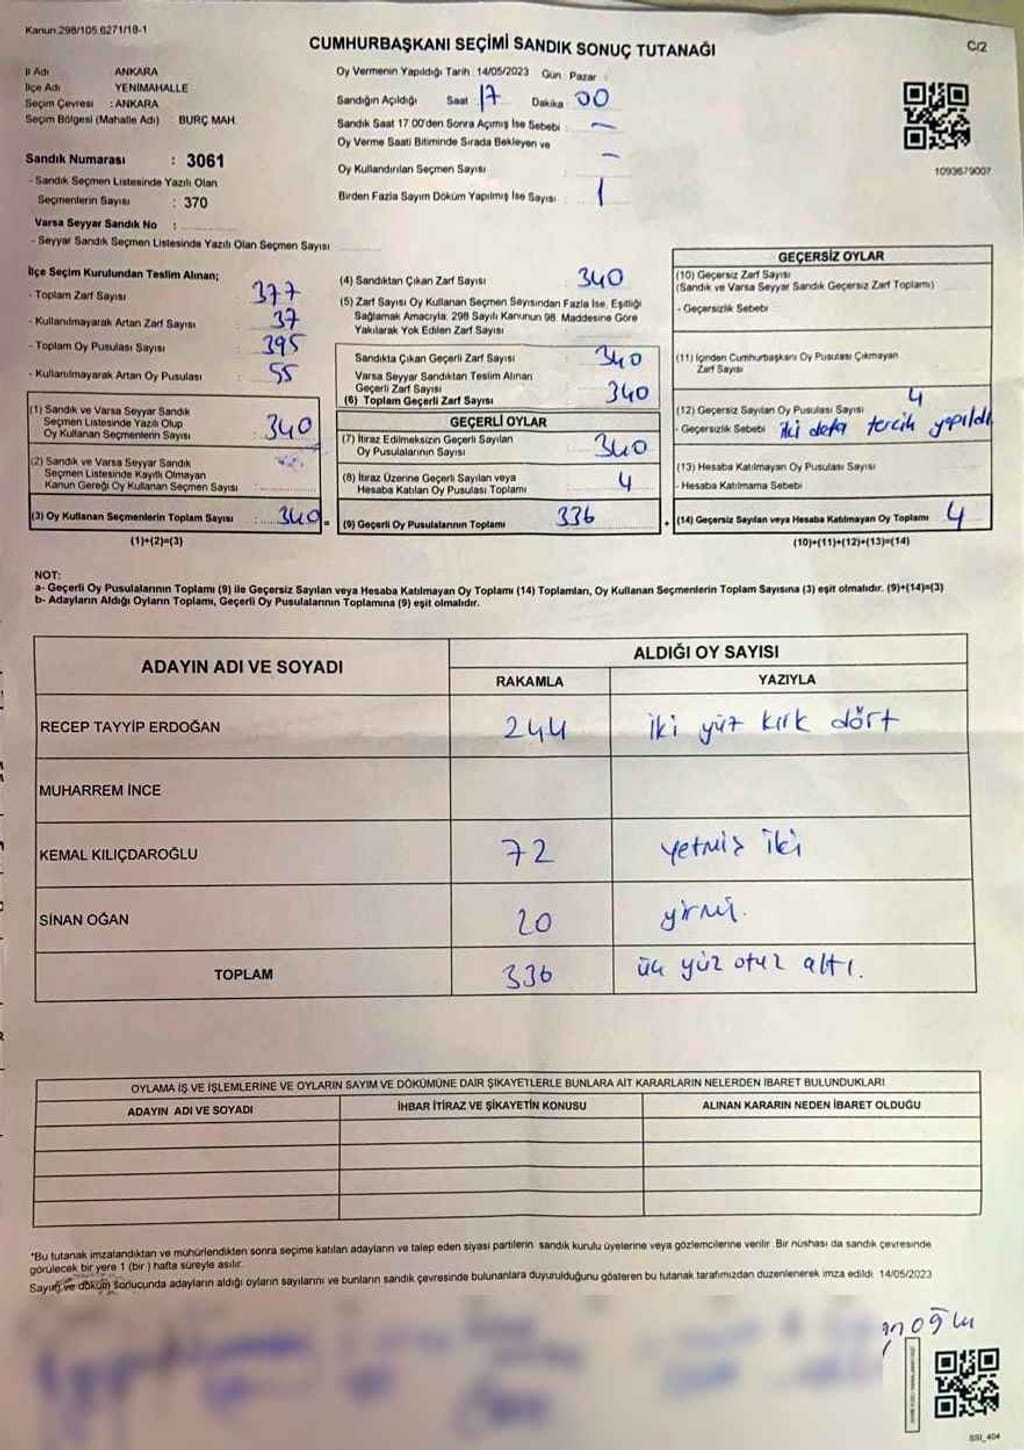 Kanun 298/105.6271/18-1
CUMHURBAŞKANI SEÇİMİ SANDIK SONUÇ TUTANAĞI
C/2
İl Adı ANKARA
İlçe Adı YENİMAHALLE
Seçim Çevresi : ANKARA
Seçim Bölgesi (Mahalle Adı) BURÇ MAH.
Sandık Numarası : 3061
- Sandık Seçmen Listesinde Yazılı Olan
Seçmenlerin Sayısı : 370
Varsa Seyyar Sandık No :
- Seyyar Sandık Seçmen Listesinde Yazılı Olan Seçmen Sayısı
Oy Vermenin Yapıldığı Tarih : 14/05/2023 Gün : Pazar
Sandığın Açıldığı Saat 17 Dakika 00
Sandık Saat 17:00'den Sonra Açılmış İse Sebebi : -
Oy Verme Saati Bitiminde Sırada Bekleyen ve
Oy Kullandırılan Seçmen Sayısı -
Birden Fazla Sayım Döküm Yapılmış İse Sayısı 1
1093679007
İlçe Seçim Kurulundan Teslim Alınan;
- Toplam Zarf Sayısı 377
- Kullanılmayarak Artan Zarf Sayısı : 37
- Toplam Oy Pusulası Sayısı : 395
- Kullanılmayarak Artan Oy Pusulası : 55
(1) Sandık ve Varsa Seyyar Sandık
Seçmen Listesinde Yazılı Olup
Oy Kullanan Seçmenlerin Sayısı 340
(2) Sandık ve Varsa Seyyar Sandık
Seçmen Listesinde Kayıtlı Olmayan
Kanun Gereği Oy Kullanan Seçmen Sayısı :
(3) Oy Kullanan Seçmenlerin Toplam Sayısı 340 =
(1)+(2)=(3)
(4) Sandıktan Çıkan Zarf Sayısı 340
(5) Zarf Sayısı Oy Kullanan Seçmen Sayısından Fazla İse, Eşitliği
Sağlamak Amacıyla, 298 Sayılı Kanunun 98. Maddesine Göre
Yakılarak Yok Edilen Zarf Sayısı
Sandıkta Çıkan Geçerli Zarf Sayısı 340
Varsa Seyyar Sandıktan Teslim Alınan
Geçerli Zarf Sayısı
(6) Toplam Geçerli Zarf Sayısı 340
GEÇERLİ OYLAR
(7) İtiraz Edilmeksizin Geçerli Sayılan
Oy Pusulalarının Sayısı 340
(8) İtiraz Üzerine Geçerli Sayılan veya
Hesaba Katılan Oy Pusulası Toplamı 4
(9) Geçerli Oy Pusulalarının Toplamı 336 +
GEÇERSİZ OYLAR
(10) Geçersiz Zarf Sayısı
(Sandık ve Varsa Seyyar Sandık Geçersiz Zarf Toplamı)
- Geçersizlik Sebebi
(11) İçinden Cumhurbaşkanı Oy Pusulası Çıkmayan
Zarf Sayısı
(12) Geçersiz Sayılan Oy Pusulası Sayısı 4
- Geçersizlik Sebebi iki defa tercih yapıldı
(13) Hesaba Katılmayan Oy Pusulası Sayısı
- Hesaba Katılmama Sebebi
(14) Geçersiz Sayılan veya Hesaba Katılmayan Oy Toplamı 4
(10)+(11)+(12)+(13)=(14)
NOT:
a- Geçerli Oy Pusulalarının Toplamı (9) ile Geçersiz Sayılan veya Hesaba Katılmayan Oy Toplamı (14) Toplamları, Oy Kullanan Seçmenlerin Toplam Sayısına (3) eşit olmalıdır. (9)+(14)=(3)
b- Adayların Aldığı Oyların Toplamı, Geçerli Oy Pusulalarının Toplamına (9) eşit olmalıdır.
ADAYIN ADI VE SOYADI
ALDIĞI OY SAYISI
RAKAMLA YAZIYLA
RECEP TAYYİP ERDOĞAN 244 iki yüz kırk dört
MUHARREM İNCE
KEMAL KILIÇDAROĞLU 72 yetmiş iki
SİNAN OĞAN 20 yirmi.
TOPLAM 336 üç yüz otuz altı.
OYLAMA İŞ VE İŞLEMLERİNE VE OYLARIN SAYIM VE DÖKÜMÜNE DAİR ŞİKAYETLERLE BUNLARA AİT KARARLARIN NELERDEN İBARET BULUNDUKLARI
ADAYIN ADI VE SOYADI İHBAR İTİRAZ VE ŞİKAYETİN KONUSU ALINAN KARARIN NEDEN İBARET OLDUĞU
*Bu tutanak imzalandıktan ve mühürlendikten sonra seçime katılan adayların ve talep eden siyasi partilerin sandık kurulu üyelerine veya gözlemcilerine verilir. Bir nüshası da sandık çevresinde
görülecek bir yere 1 (bir) hafta süreyle asılır.
Sayım ve döküm sonucunda adayların aldığı oyların sayılarını ve bunların sandık çevresinde bulunanlara duyurulduğunu gösteren bu tutanak tarafımızdan düzenlenerek imza edildi. 14/05/2023
SSI_404